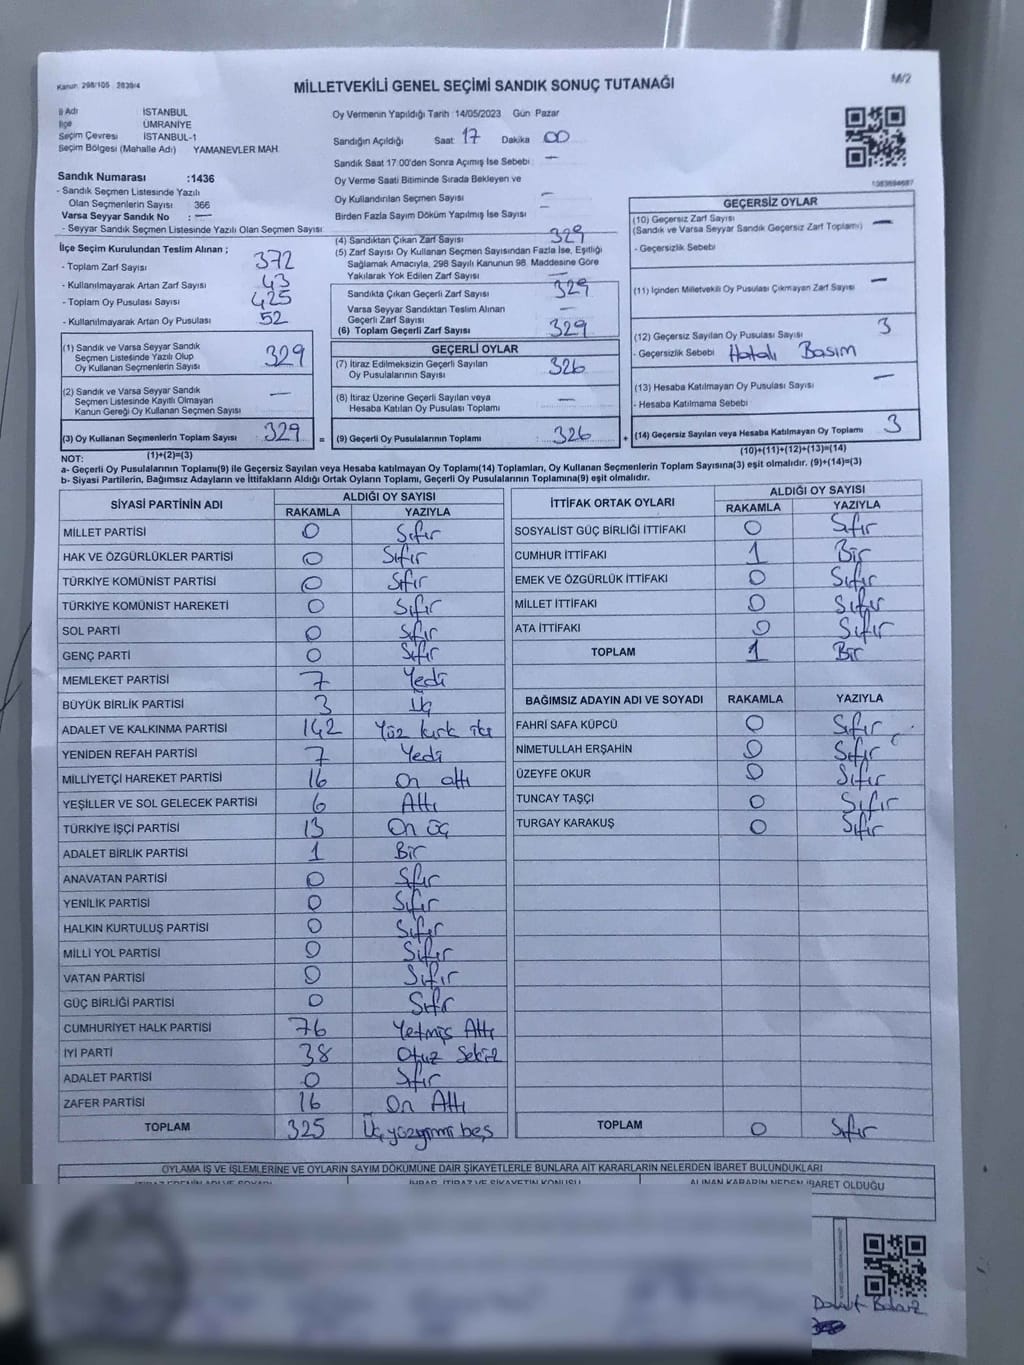 Kanun: 298/105 2839/4
M/2
MİLLETVEKİLİ GENEL SEÇİMİ SANDIK SONUÇ TUTANAĞI
İl Adı İSTANBUL
İlçe ÜMRANİYE
Seçim Çevresi İSTANBUL-1
Seçim Bölgesi (Mahalle Adı) YAMANEVLER MAH.
Sandık Numarası :1436
- Sandık Seçmen Listesinde Yazılı
Olan Seçmenlerin Sayısı 366
Varsa Seyyar Sandık No : —
- Seyyar Sandık Seçmen Listesinde Yazılı Olan Seçmen Sayısı
İlçe Seçim Kurulundan Teslim Alınan ;
- Toplam Zarf Sayısı 372
- Kullanılmayarak Artan Zarf Sayısı 43
- Toplam Oy Pusulası Sayısı 425
- Kullanılmayarak Artan Oy Pusulası 52
(1) Sandık ve Varsa Seyyar Sandık
Seçmen Listesinde Yazılı Olup
Oy Kullanan Seçmenlerin Sayısı 329
(2) Sandık ve Varsa Seyyar Sandık
Seçmen Listesinde Kayıtlı Olmayan
Kanun Gereği Oy Kullanan Seçmen Sayısı —
(3) Oy Kullanan Seçmenlerin Toplam Sayısı 329 =
(1)+(2)=(3)
Oy Vermenin Yapıldığı Tarih :14/05/2023 Gün: Pazar
Sandığın Açıldığı Saat: 17 Dakika 00
Sandık Saat 17:00'den Sonra Açımış İse Sebebi: —
Oy Verme Saati Bitiminde Sırada Bekleyen ve
Oy Kullandırılan Seçmen Sayısı —
Birden Fazla Sayım Döküm Yapılmış İse Sayısı —
(4) Sandıktan Çıkan Zarf Sayısı 329
(5) Zarf Sayısı Oy Kullanan Seçmen Sayısından Fazla İse, Eşitliği
Sağlamak Amacıyla, 298 Sayılı Kanunun 98. Maddesine Göre
Yakılarak Yok Edilen Zarf Sayısı —
Sandıkta Çıkan Geçerli Zarf Sayısı 329
Varsa Seyyar Sandıktan Teslim Alınan
Geçerli Zarf Sayısı —
(6) Toplam Geçerli Zarf Sayısı 329
GEÇERLİ OYLAR
(7) İtiraz Edilmeksizin Geçerli Sayılan
Oy Pusulalarının Sayısı 326
(8) İtiraz Üzerine Geçerli Sayılan veya
Hesaba Katılan Oy Pusulası Toplamı —
(9) Geçerli Oy Pusulalarının Toplamı 326 +
GEÇERSİZ OYLAR
(10) Geçersiz Zarf Sayısı
(Sandık ve Varsa Seyyar Sandık Geçersiz Zarf Toplamı) —
- Geçersizlik Sebebi
(11) İçinden Milletvekili Oy Pusulası Çıkmayan Zarf Sayısı —
(12) Geçersiz Sayılan Oy Pusulası Sayısı 3
- Geçersizlik Sebebi Hatalı Basım
(13) Hesaba Katılmayan Oy Pusulası Sayısı —
- Hesaba Katılmama Sebebi
(14) Geçersiz Sayılan veya Hesaba Katılmayan Oy Toplamı 3
(10)+(11)+(12)+(13)=(14)
NOT:
a- Geçerli Oy Pusulalarının Toplamı(9) ile Geçersiz Sayılan veya Hesaba katılmayan Oy Toplamı(14) Toplamları, Oy Kullanan Seçmenlerin Toplam Sayısına(3) eşit olmalıdır. (9)+(14)=(3)
b- Siyasi Partilerin, Bağımsız Adayların ve İttifakların Aldığı Ortak Oyların Toplamı, Geçerli Oy Pusulalarının Toplamına(9) eşit olmalıdır.
SİYASİ PARTİNİN ADI ALDIĞI OY SAYISI
RAKAMLA YAZIYLA
MİLLET PARTİSİ 0 Sıfır
HAK VE ÖZGÜRLÜKLER PARTİSİ 0 Sıfır
TÜRKİYE KOMÜNİST PARTİSİ 0 Sıfır
TÜRKİYE KOMÜNİST HAREKETİ 0 Sıfır
SOL PARTİ 0 Sıfır
GENÇ PARTİ 0 Sıfır
MEMLEKET PARTİSİ 7 Yedi
BÜYÜK BİRLİK PARTİSİ 3 Üç
ADALET VE KALKINMA PARTİSİ 142 Yüz kırk iki
YENİDEN REFAH PARTİSİ 7 Yedi
MİLLİYETÇİ HAREKET PARTİSİ 16 On altı
YEŞİLLER VE SOL GELECEK PARTİSİ 6 Altı
TÜRKİYE İŞÇİ PARTİSİ 13 On üç
ADALET BİRLİK PARTİSİ 1 Bir
ANAVATAN PARTİSİ 0 Sıfır
YENİLİK PARTİSİ 0 Sıfır
HALKIN KURTULUŞ PARTİSİ 0 Sıfır
MİLLİ YOL PARTİSİ 0 Sıfır
VATAN PARTİSİ 0 Sıfır
GÜÇ BİRLİĞİ PARTİSİ 0 Sıfır
CUMHURİYET HALK PARTİSİ 76 Yetmiş Altı
İYİ PARTİ 38 Otuz Sekiz
ADALET PARTİSİ 0 Sıfır
ZAFER PARTİSİ 16 On Altı
TOPLAM 325 Üçyüzyirmi beş
İTTİFAK ORTAK OYLARI ALDIĞI OY SAYISI
RAKAMLA YAZIYLA
SOSYALİST GÜÇ BİRLİĞİ İTTİFAKI 0 Sıfır
CUMHUR İTTİFAKI 1 Bir
EMEK VE ÖZGÜRLÜK İTTİFAKI 0 Sıfır
MİLLET İTTİFAKI 0 Sıfır
ATA İTTİFAKI 0 Sıfır
TOPLAM 1 Bir
BAĞIMSIZ ADAYIN ADI VE SOYADI RAKAMLA YAZIYLA
FAHRİ SAFA KÜPCÜ 0 Sıfır
NİMETULLAH ERŞAHİN 0 Sıfır
ÜZEYFE OKUR 0 Sıfır
TUNCAY TAŞÇI 0 Sıfır
TURGAY KARAKUŞ 0 Sıfır
TOPLAM 0 Sıfır
OYLAMA İŞ VE İŞLEMLERİNE VE OYLARIN SAYIM DÖKÜMÜNE DAİR ŞİKAYETLERLE BUNLARA AİT KARARLARIN NELERDEN İBARET BULUNDUKLARI
İHBAR, İTİRAZ VE ŞİKAYETİN KONUSU ALINAN KARARIN NEDEN İBARET OLDUĞU